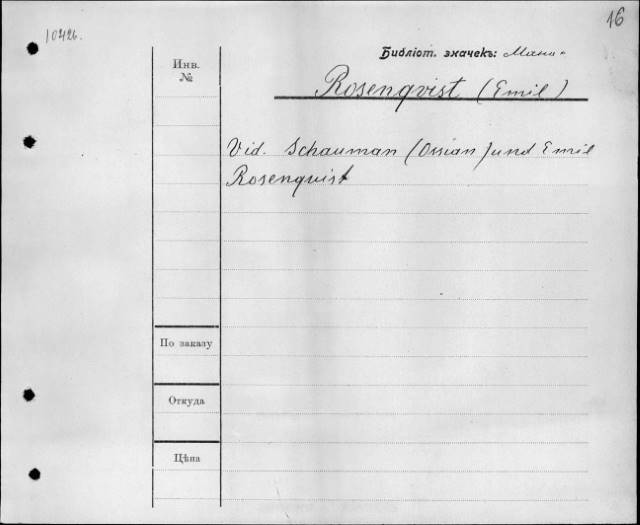 10426.
16
Библіот. значекъ:
Инв.
№
Rosenqvist (Emil)
Vid. Schauman (Ossian) und Emil
Rosenqvist
По заказу
Откуда
Цѣна